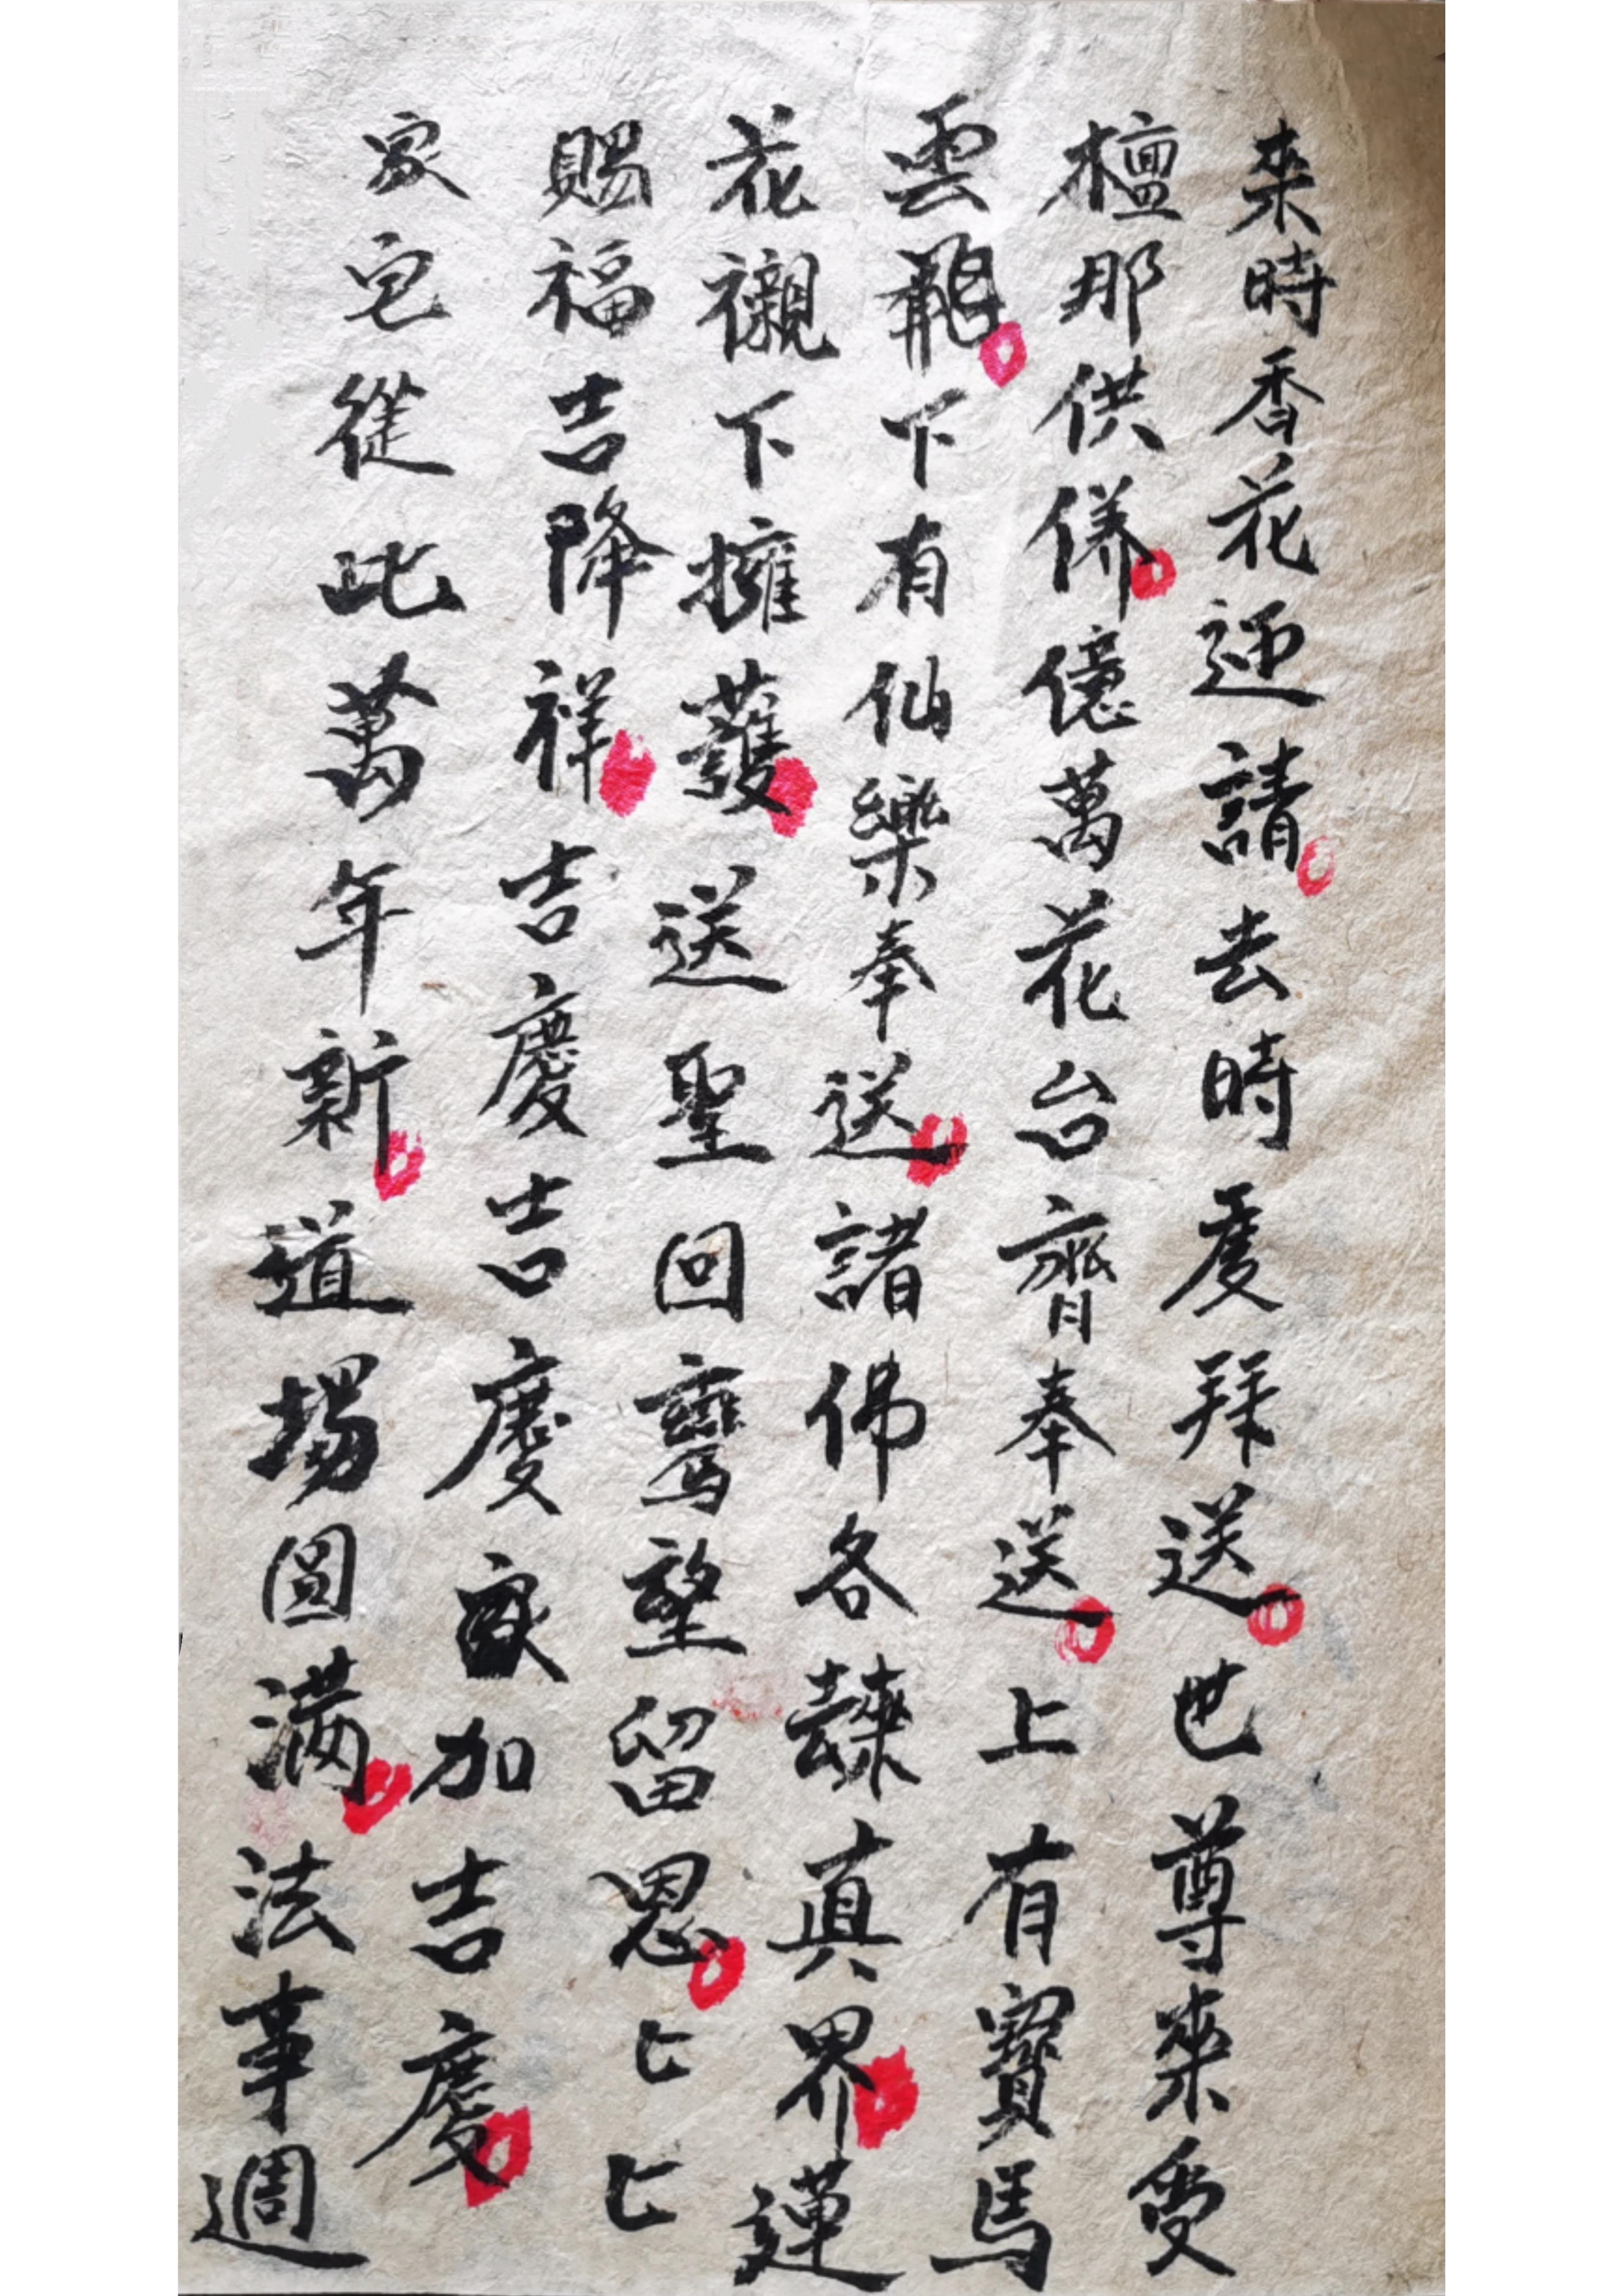 來時香花迎請去時虔拜送世尊來受
檀那供養億萬花台齊奉送上有寶馬
雲龍下有仙樂奉送諸佛各歸真界蓮
花襯下擁護送聖回鸞聖留恩匕匕
賜福吉降祥吉慶吉慶家加吉慶
家宅從此萬年新道場圓滿法事週